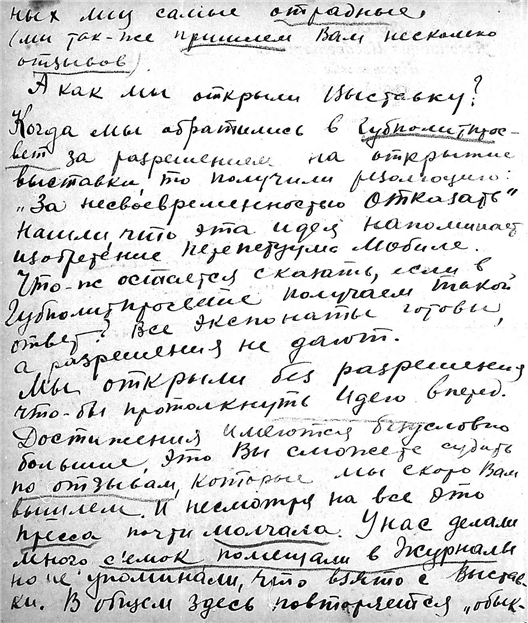 ных лиц самые отрадные,
(мы так-же пришлем Вам несколько
отзывов).
А как мы открыли Выставку?
Когда мы обратились в Губполитпрос-
вет за разрешением на открытие
выставки, то получили резолюцию:
„За несвоевременностью отказать"
Нашли, что эта идея напоминает
изобретение перепетуум мобиле.
Что-ж остается сказать, если в
Губполитпросвете получаем такой
ответ? Все экспонаты готовы,
а разрешения не дают.
Мы открыли без разрешения
что-бы протолкнуть идею вперед.
Достижения имеются безусловно
большие, это Вы сможете судить
по отзывам, которые мы скоро Вам
вышлем. И несмотря на все это
пресса почти молчала. У нас делали
много с'емок, помещали в журнали
но не упоминали, что взято с Выстав-
ки. В общем здесь повторяется „обык-